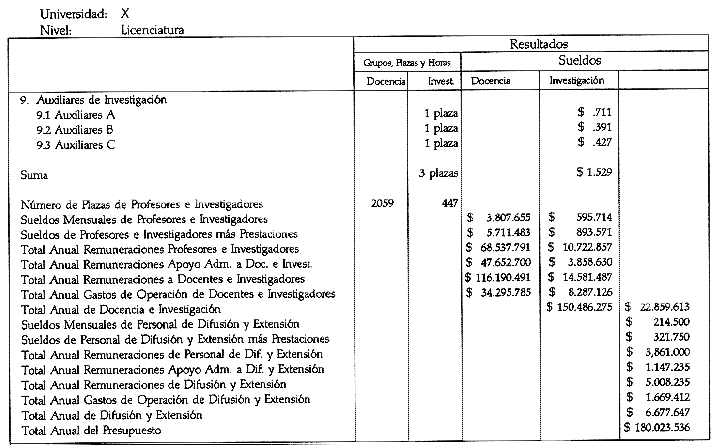 Universidad: X
Nivel: Licenciatura
Resultados
Grupos, Plazas y Horas Sueldos
Docencia Invest. Docencia Investigación
9. Auxiliares de Investigación
9.1 Auxiliares A 1 plaza $ .711
9.2 Auxiliares B 1 plaza $ .391
9.3 Auxiliares C 1 plaza $ .427
Suma 3 plazas $ 1.529
Número de Plazas de Profesores e Investigadores 2059 447
Sueldos Mensuales de Profesores e Investigadores $ 3.807.655 $ 595.714
Sueldos de Profesores e Investigadores más Prestaciones $ 5.711.483 $ 893.571
Total Anual Remuneraciones Profesores e Investigadores $ 68.537.791 $ 10.722.857
Total Anual Remuneraciones Apoyo Adm. a Doc. e Invest. $ 47.652.700 $ 3.858.630
Total Anual Remuneraciones a Docentes e Investigadores $ 116.190.491 $ 14.581.487
Total Anual Gastos de Operación de Docentes e Investigadores $ 34.295.785 $ 8.287.126
Total Anual de Docencia e Investigación $ 150.486.275 $ 22.859.613
Sueldos Mensuales de Personal de Difusión y Extensión $ 214.500
Sueldos de Personal de Difusión y Extensión más Prestaciones $ 321.750
Total Anual Remuneraciones de Personal de Dif. y Extensión $ 3,861.000
Total Anual Remuneraciones Apoyo Adm. a Dif. y Extensión $ 1.147.235
Total Anual Remuneraciones de Difusión y Extensión $ 5.008.235
Total Anual Gastos de Operación de Difusión y Extensión $ 1.669.412
Total Anual de Difusión y Extensión $ 6.677.647
Total Anual del Presupuesto $ 180.023.536